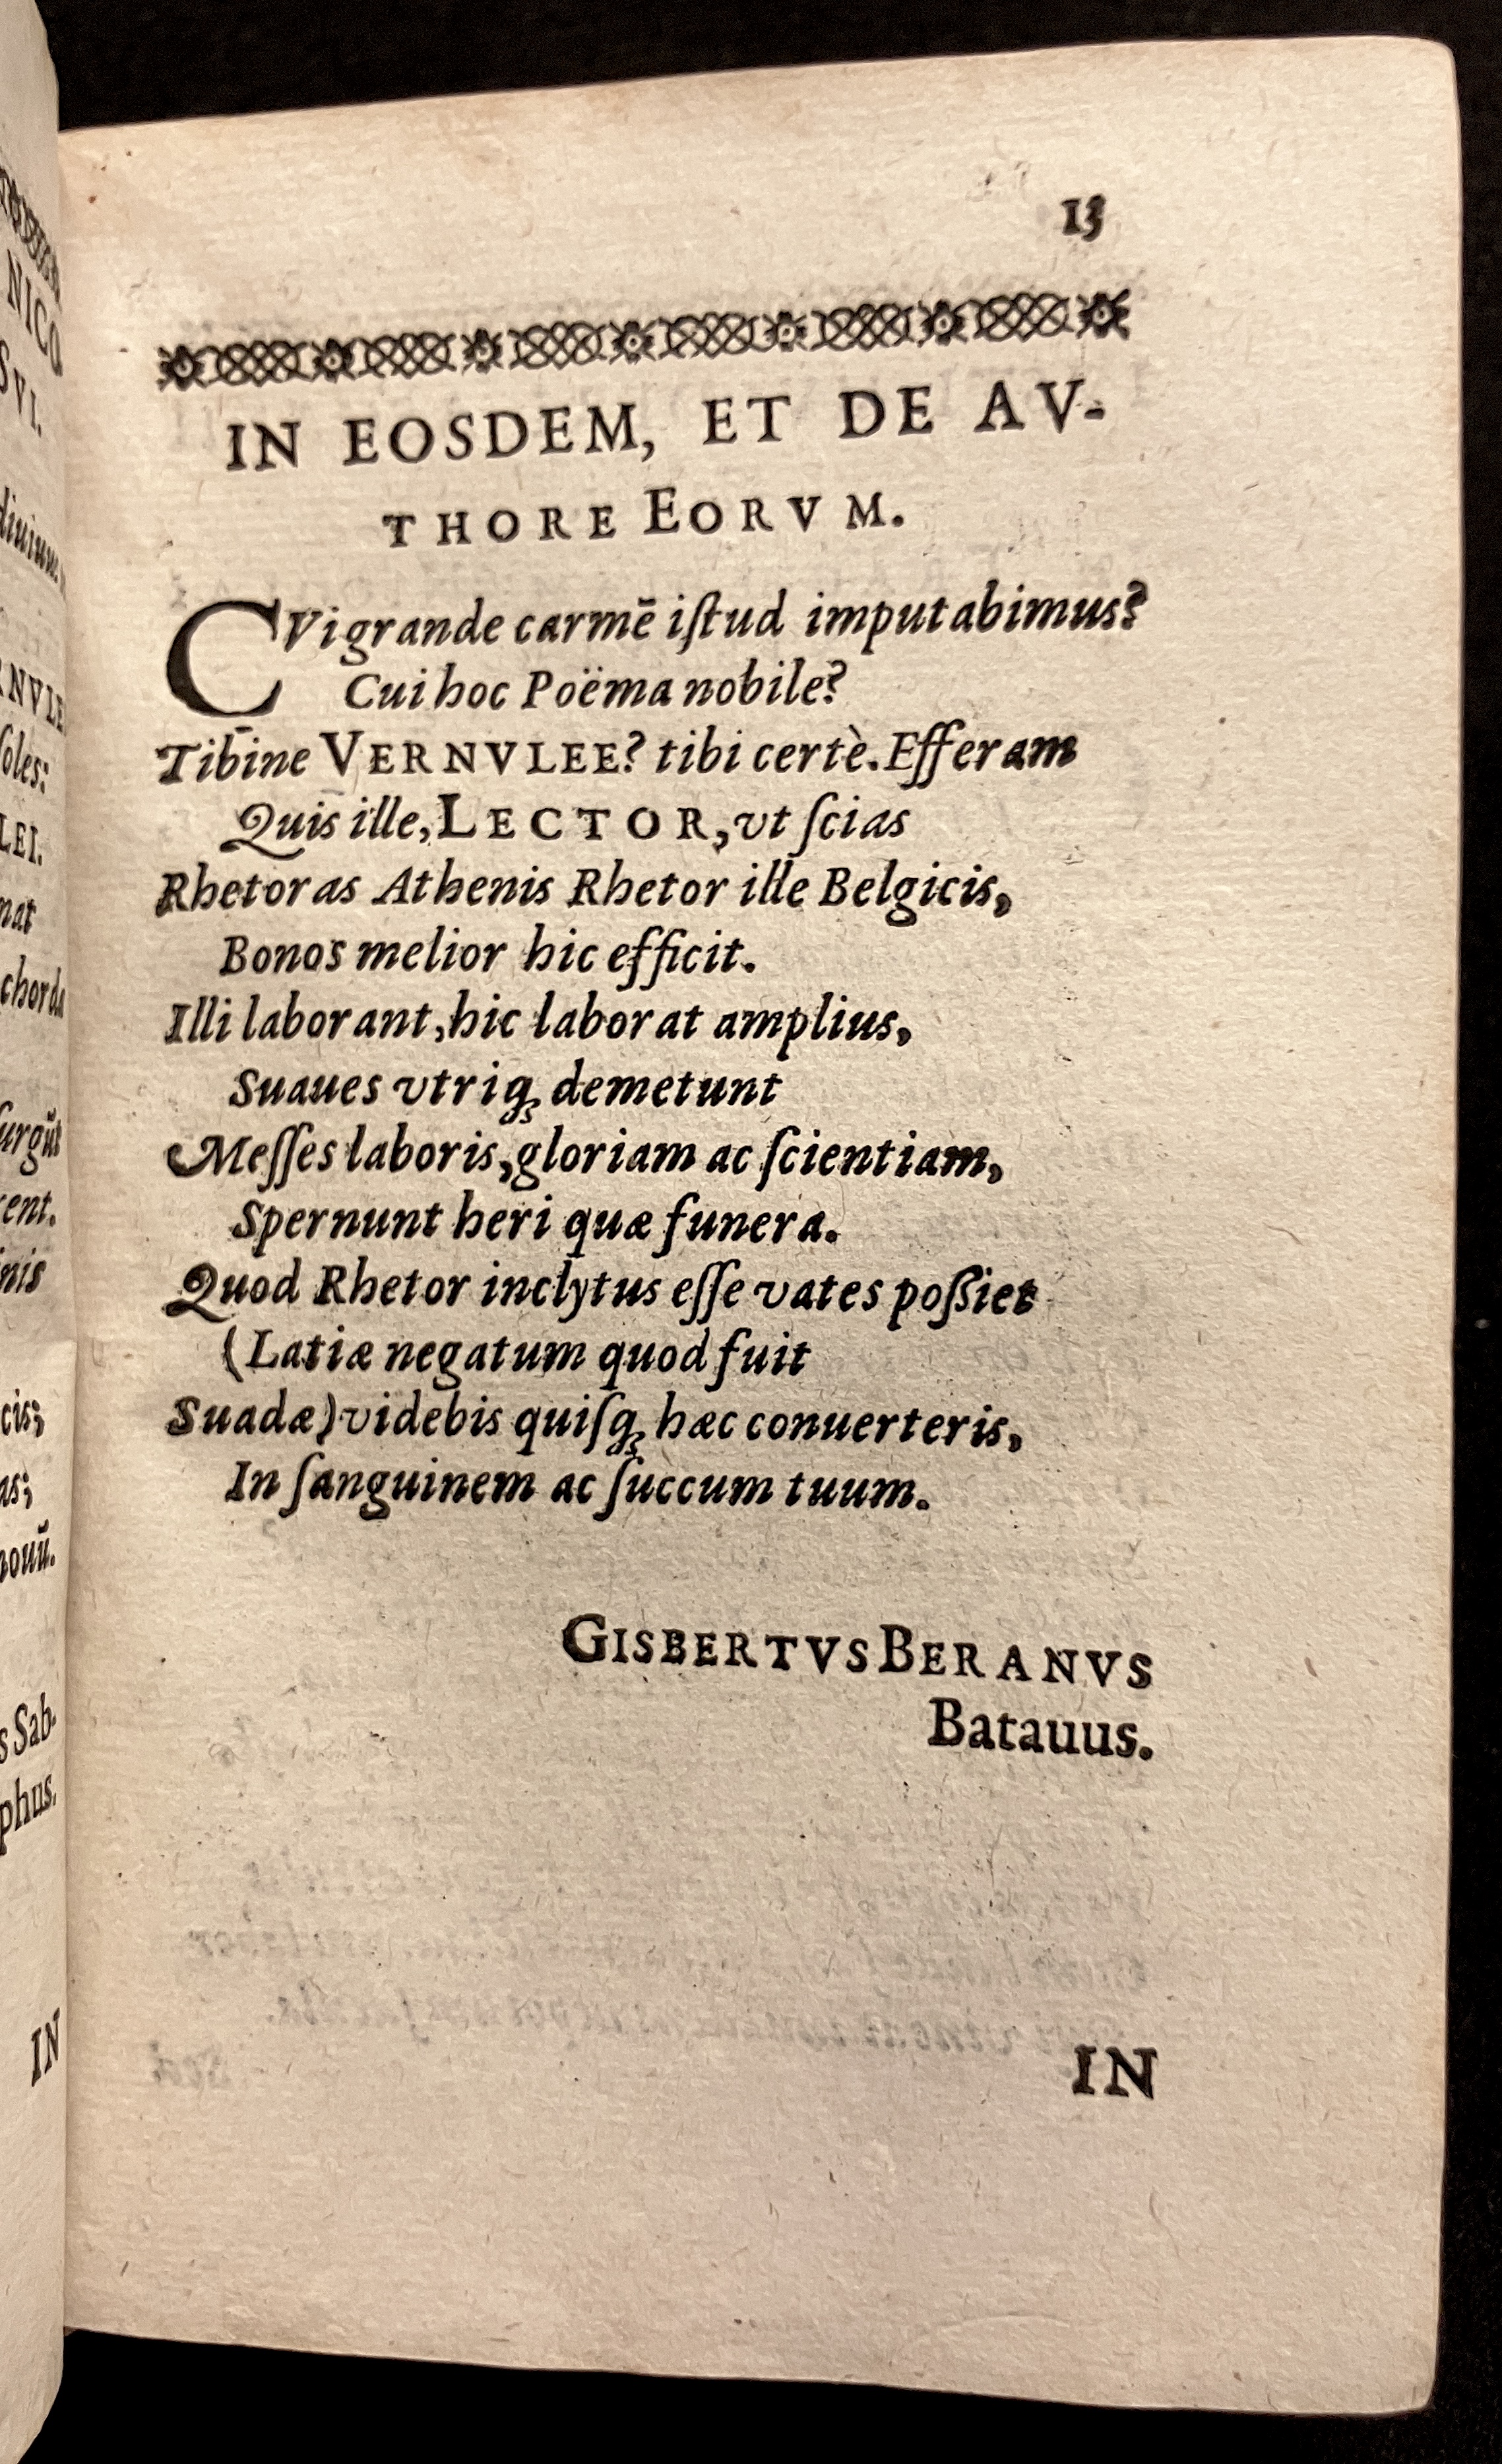 NICO
SVI.
diuium
RNVLE
soles:
LEI.
nat
chorda
surgūt
cent.
inis
cis;
as;
nouū.
s Sab.
phus.
IN
13
IN EOSDEM, ET DE AV-
THORE EORVM.
CVi grande carmē iſtud imputabimus?
Cui hoc Poëma nobile?
Tibine VERNVLEE? tibi certè. Efferam
Quis ille, LECTOR, vt ſcias
Rhetoras Athenis Rhetor ille Belgicis,
Bonos melior hic efficit.
Illi laborant, hic laborat amplius,
Suaues vtriq; demetunt
Meſſes laboris, gloriam ac ſcientiam,
Spernunt heri quæ funera.
Quod Rhetor inclytus eſſe vates poſsiet
(Latiæ negatum quod fuit
Suadæ) videbis quiſq; hæc conuerteris,
In ſanguinem ac ſuccum tuum.
GISBERTVS BERANVS
Batauus.
IN